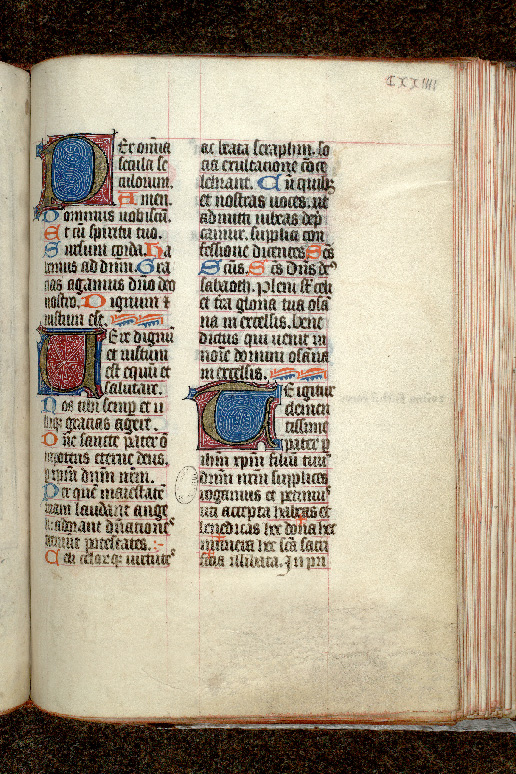 CXXIIII
Per omia
secula se
culorum.
Amen.
Dominus uobiscū.
Et cū spiritu tuo.
Sursum corda. Ha
bemus ad dnm. Gra
cias agamus dno deo
nostro. Dignum &
iustum est.
Uere dignū
et iustum
est equū et
salutare.
Nos tibi semp et u
biqz gracias agere.
Dne sancte pater o
mpotens eterne deus.
p xpm dnm nrm.
Per quē maiestatē
tuam laudant ange
li adorant dnaciones
tremunt potestates.
Celi celorqz uirtutes
ac beata seraphin. so
cia exultacione cōce
lebrant. Cū quibz
et nostras uoces. ut
admitti iubeas dep
camur. supplici con
fessione dicentes Scs
Scus. Scs dns ds
sabaoth. pleni st celi
et tra gloria tua osā
na in excelsis. bene
dictus qui uenit in
noie domini osāna
in excelsis.
Te igitur
clemen
tissime
pater p
ihm xpm filiū tuū
dnm nrm supplices
rogamus et petimus
uti accepta habeas et
benedicas hec dona hec
munera hec scā sacri
ficia illibata. In pri